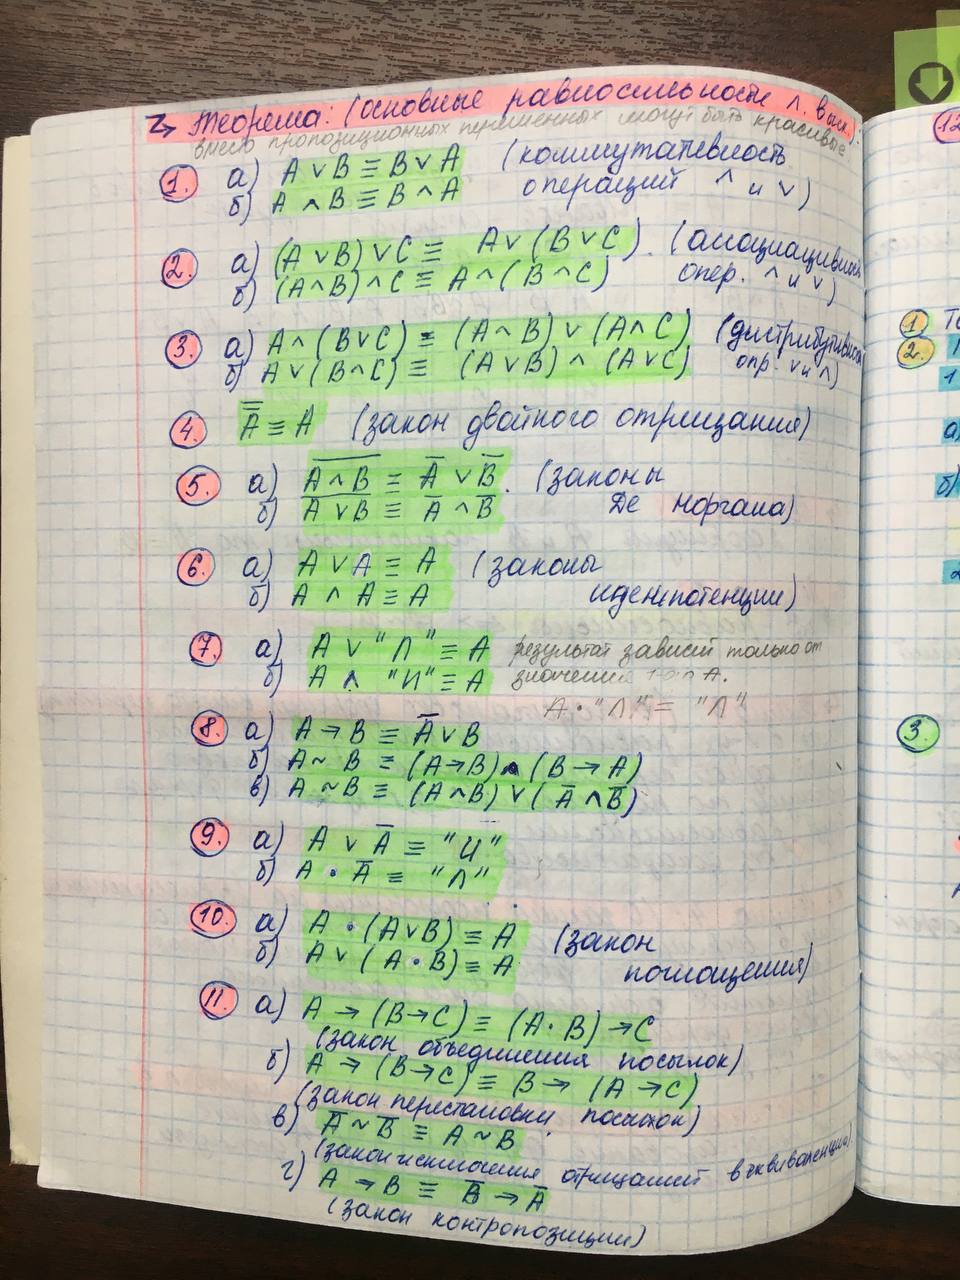 Теорема: (основные равносильности л. выск.):
вместо пропозиционных переменных могут быть красивые
1. а) A ∨ B ≡ B ∨ A (коммутативность
б) A ∧ B ≡ B ∧ A операций ∧ и ∨)
2. а) (A ∨ B) ∨ C ≡ A ∨ (B ∨ C). (ассоциативность
б) (A ∧ B) ∧ C ≡ A ∧ (B ∧ C) опер. ∧ и ∨)
3. а) A ∧ (B ∨ C) ≡ (A ∧ B) ∨ (A ∧ C) (дистрибутивность
б) A ∨ (B ∧ C) ≡ (A ∨ B) ∧ (A ∨ C) опр. ∨ и ∧)
4. A̿ ≡ A (закон двойного отрицания)
5. а) A̅ ̅∧̅ ̅B̅ ≡ A̅ ∨ B̅. (законы
б) A̅ ̅∨̅ ̅B̅ ≡ A̅ ∧ B̅ Де Моргана)
6. а) A ∨ A ≡ A (законы
б) A ∧ A ≡ A идемпотенции)
7. а) A ∨ "Л" ≡ A результат зависит только от
б) A ∧ "И" ≡ A значения A.
A · "Л" = "Л"
8. а) A → B ≡ A̅ ∨ B
б) A ~ B ≡ (A → B) ∧ (B → A)
в) A ~ B ≡ (A ∧ B) ∨ (A̅ ∧ B̅)
9. а) A ∨ A̅ ≡ "И"
б) A · A̅ ≡ "Л"
10. а) A · (A ∨ B) ≡ A (закон
б) A ∨ (A · B) ≡ A поглощения)
11. а) A → (B → C) ≡ (A · B) → C
(закон объединения посылок)
б) A → (B → C) ≡ B → (A → C)
(закон перестановки посылок)
в) A̅ ~ B̅ ≡ A ~ B
(закон исключения отрицаний в эквиваленции).
г) A → B ≡ B̅ → A̅
(закон контропозиции)
12
1. 
2. 
1
а)
б)
2
3.